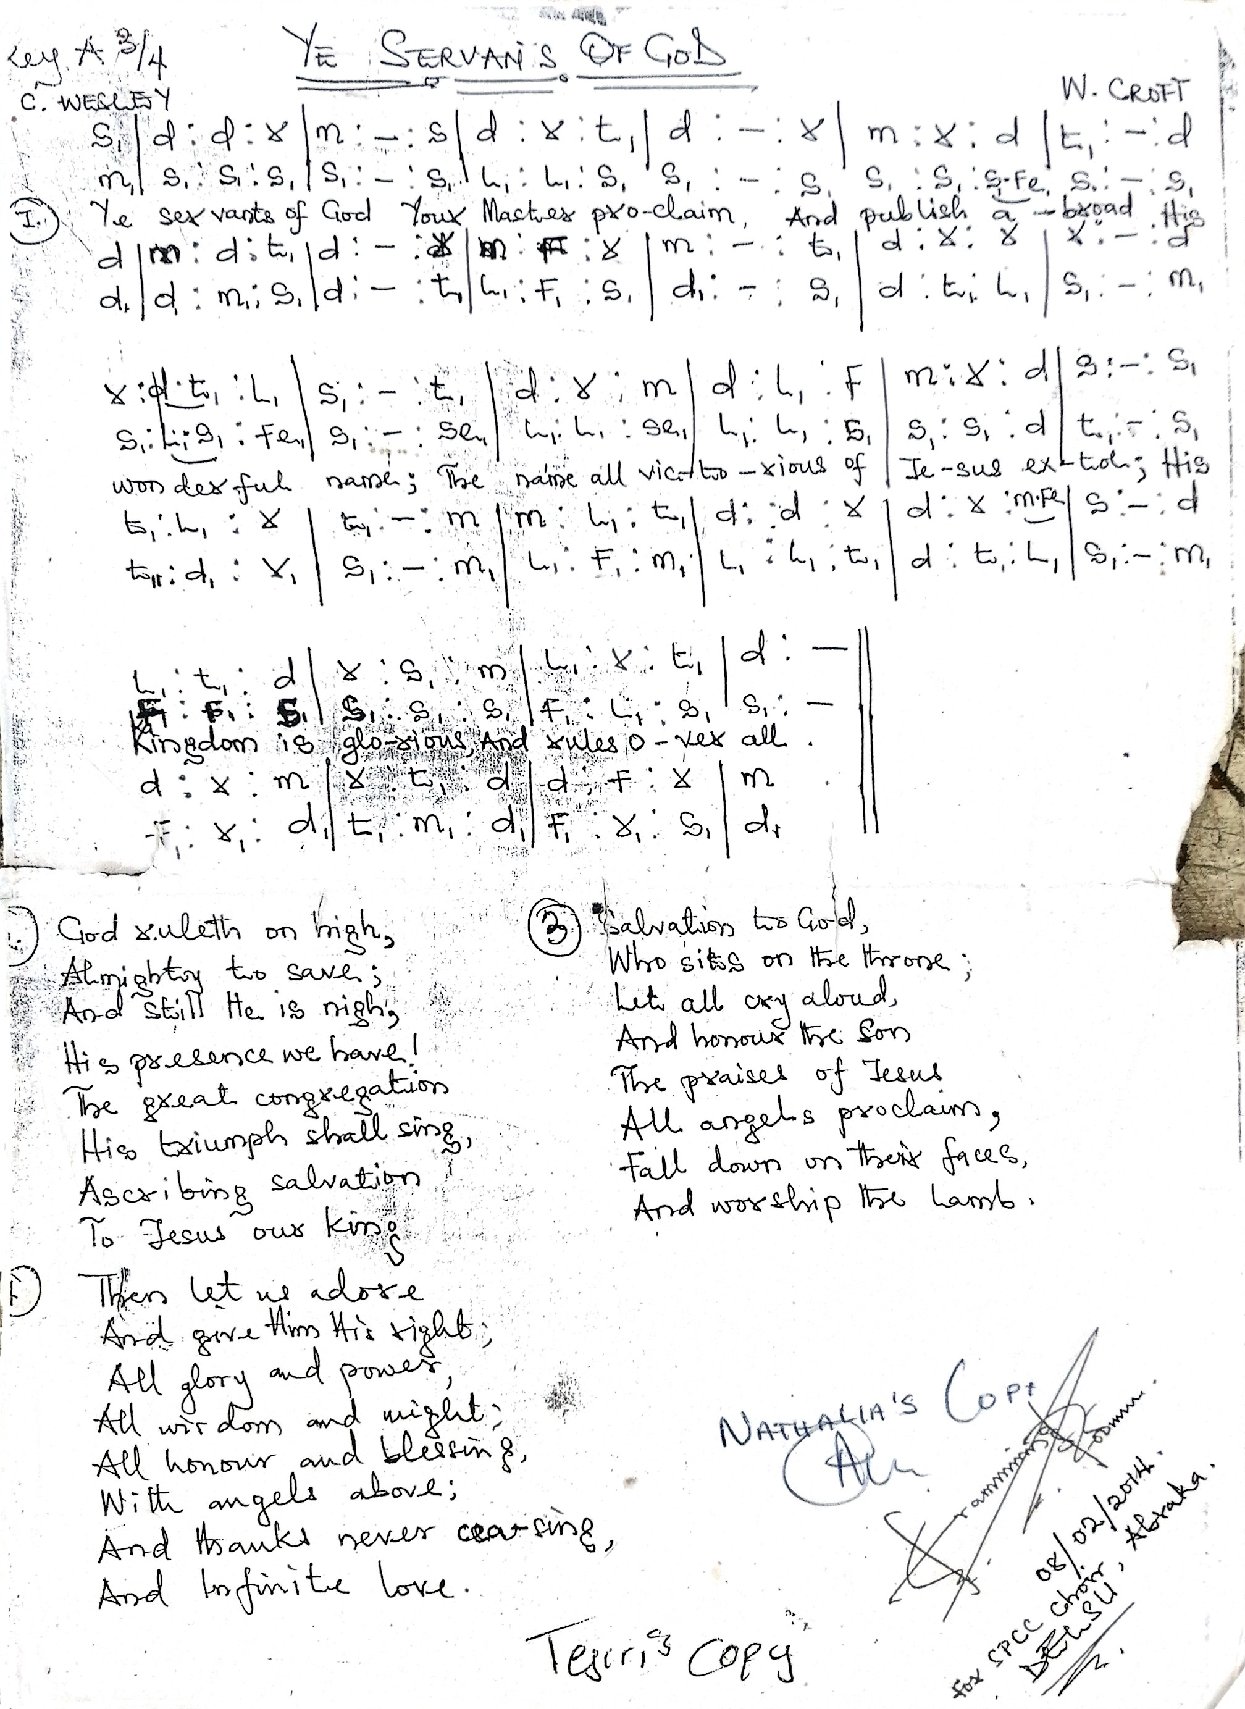 Key A 3/4
YE SERVANS OF GOD
C. WESLEY
W. CROFT
S₁ | d : d : r | m : – : s | d : r : t₁ | d : – : r | m : r : d | t₁ : – : d
m₁ | s₁ : s₁ : s₁ | s₁ : – : s₁ | L₁ : L₁ : s₁ | s₁ : – : s₁ | s₁ : s₁ : s.fe₁ | s₁ : – : s₁
1. Ye servants of God Your Master pro-claim, And publish a-broad His
d | m : d : t₁ | d : – : r | m : F : r | m : – : t₁ | d : r : r | r : – : d
d₁ | d : m₁ : s₁ | d : – : t₁ | L₁ : F₁ : s₁ | d₁ : – : s₁ | d : t₁ : L₁ | s₁ : – : m₁
r : d : t₁ : L₁ | s₁ : – : t₁ | d : r : m | d : L₁ : F | m : r : d | s : – : s₁
s₁ : L₁ : s₁ : fe₁ | s₁ : – : se₁ | L₁ : L₁ : se₁ | L₁ : L₁ : s₁ | s₁ : s₁ : d | t₁ : – : s₁
wonderful name; The name all vic-to-rious of Je-sus ex-tol; His
t₁ : L₁ : r | t₁ : – : m | m : L₁ : t₁ | d : d : r | d : r : m.fe | s : – : d
t₁₁ : d₁ : r₁ | s₁ : – : m₁ | L₁ : F₁ : m₁ | L₁ : L₁ : t₁ | d : t₁ : L₁ | s₁ : – : m₁
L₁ : t₁ : d | r : s₁ : m | L₁ : r : t₁ | d : – ||
F₁ : F₁ : s₁ | s₁ : s₁ : s₁ | F₁ : L₁ : s₁ | s₁ : –
Kingdom is glo-rious, And rules o-ver all.
d : r : m | r : t₁ : d | d : F : r | m
F₁ : r₁ : d₁ | t₁ : m₁ : d₁ | F₁ : r₁ : s₁ | d₁
God ruleth on high,
Almighty to save;
And still He is nigh;
His presence we have!
The great congregation
His triumph shall sing,
Ascribing salvation
To Jesus our King
3 Salvation to God,
Who sits on the throne;
Let all cry aloud,
And honour the Son
The praises of Jesus
All angels proclaim,
Fall down on their faces,
And worship the Lamb.
Then let us adore
And give Him His right;
All glory and power,
All wisdom and might;
All honour and blessing,
With angels above;
And thanks never cea-sing,
And Infinite love.
NATHALIA'S COPY
08/02/2014.
For SPCC Choir, Abraka.
DELSU
Tejiri's Copy